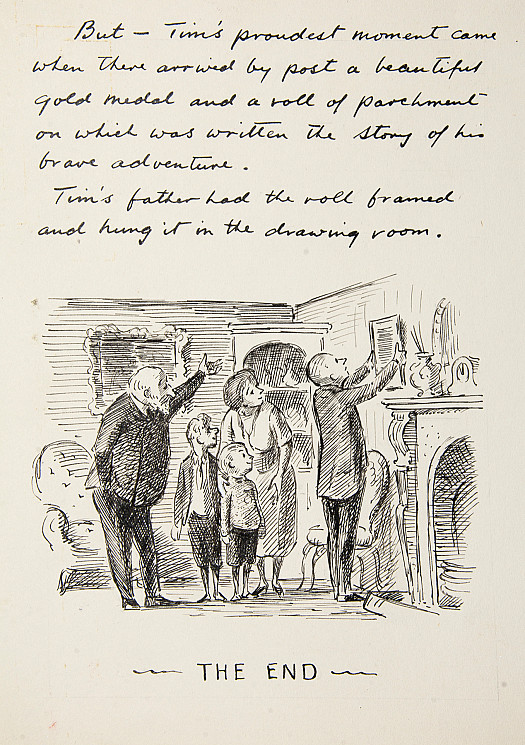 But – Tim's proudest moment came
when there arrived by post a beautiful
gold medal and a roll of parchment
on which was written the story of his
brave adventure.
Tim's father had the roll framed
and hung it in the drawing room.
THE END